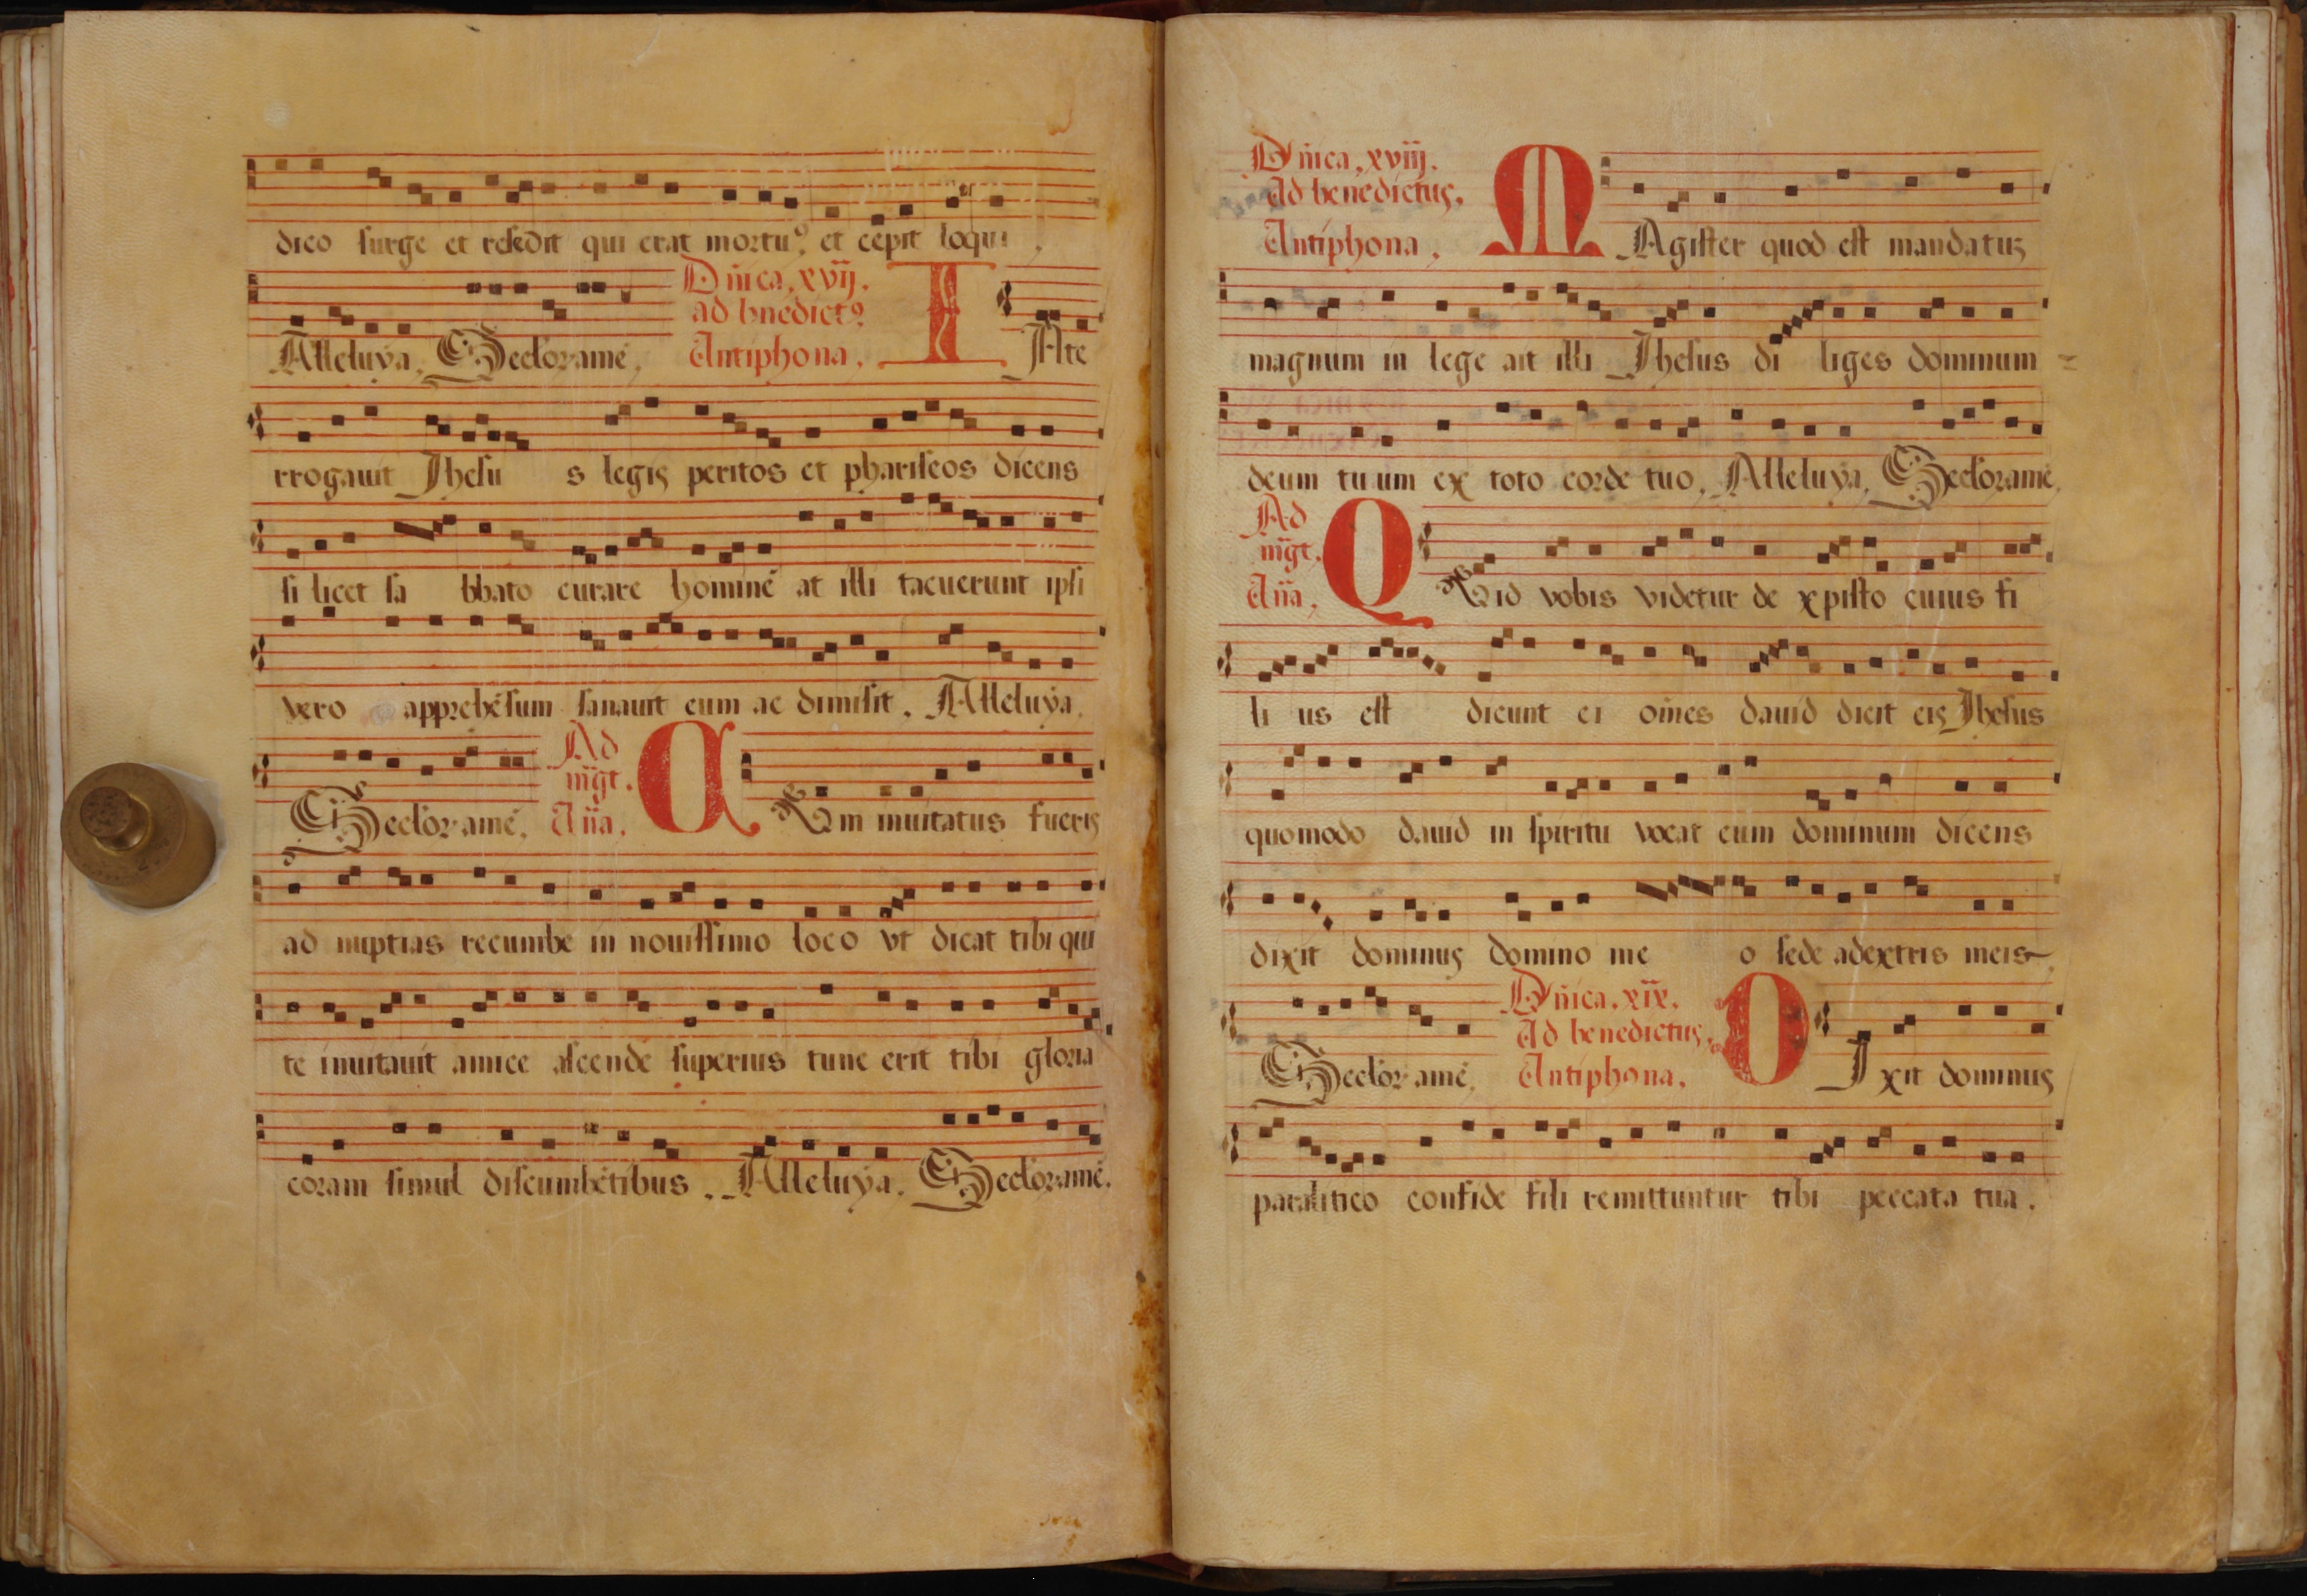 dico surge et resedit qui erat mortuꝰ et cepit loqui.
Alleluya. Seclor. amē.
Dn̄ica. xvij.
ad bn̄edictꝰ
Antiphona.
I Nte
rrogauit Jhesu s legis peritos et phariseos dicens
si licet sa bbato curare hominē at illi tacuerunt ipsi
vero apprehēsum sanauit eum ac dimisit. Alleluya.
Seclor. amē.
Ad
mḡt.
An̄a.
C Um inuitatus fueris
ad nuptias recumbe in nouissimo loco vt dicat tibi qui
te inuitauit amice ascende superius tunc erit tibi gloria
coram simul discumbētibus. Alleluya. Seclor. amē.
Dn̄ica. xviij.
Ad benedictus.
Antiphona.
M Agister quod est mandatuʒ
magnum in lege ait illi Jhesus di liges dominum =
deum tuum ex toto corde tuo. Alleluya. Seclor. amē.
Ad
mḡt.
An̄a.
Q Uid vobis videtur de xpisto cuius fi
li us est dicunt ei om̄es dauid dicit eis Jhesus
quomodo dauid in spiritu vocat eum dominum dicens
dixit dominus domino me o sede adextris meis.
Seclor. amē.
Dn̄ica. xix.
Ad benedictus.
Antiphona.
D Ixit dominus
paralitico confide fili remittuntur tibi peccata tua.